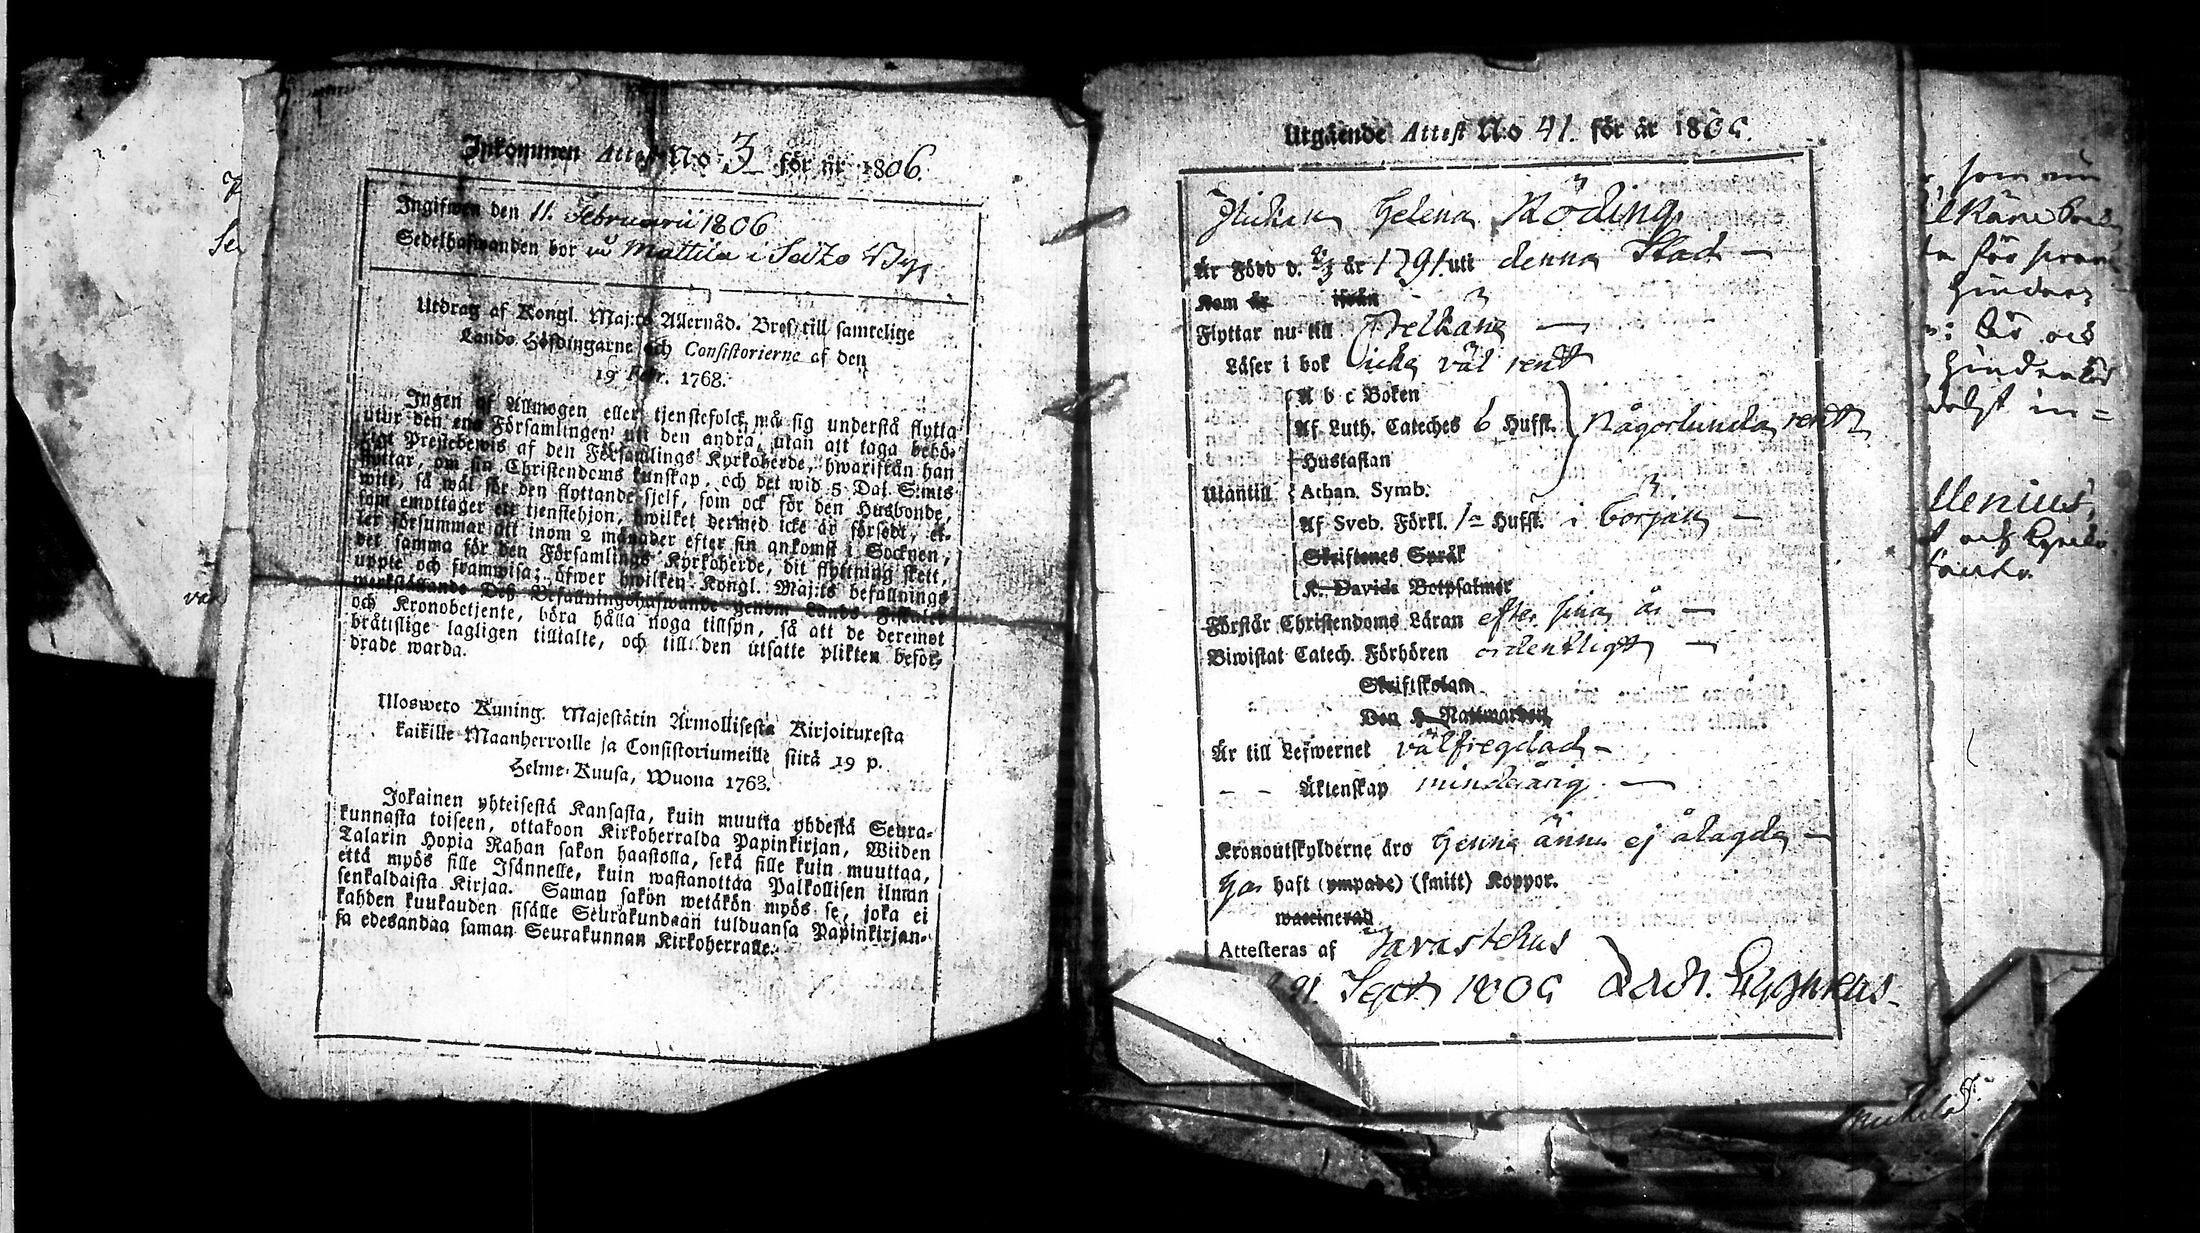 Inkommen Attest No 3 för år 1806.
Ingifwen den 11. Februarii 1806
Sedelhafwanden bor på Mattila i Seitz By
Utdrag af Kongl. Maj:ts Allernåd. Bref till samtelige
Lands Höfdingarne och Consistorierne af den
19 Febr. 1768.
Ingen af Allmogen eller tjenstefolck må sig understå flytta
utur den ena Församlingen uti den andra, utan att taga behö-
rigt Prestebewis af den Församlings Kyrkoherde, hwarifrån han
flyttar, om sin Christendoms kunskap, och det wid 5 Dal. S:mts
wite, så wäl för den flyttande sjelf, som ock för den Husbonde,
som emottager ett tjenstehjon, hwilket dermed icke är försedt, el-
ler försummar att inom 2 månader efter sin ankomst i Socknen,
det samma för den Församlings Kyrkoherde, dit flyttning skett,
uppte och framwisa; öfwer hwilken Kongl. Maj:ts befallnings
werkställande Des Befallningshafwande genom Lands Fiskaler
och Kronobetjente, böra hålla noga tillsyn, så att de deremot
bråtislige lagligen tilltalte, och till den utsatte plikten befor-
drade warda.
Ulosweto Kuning. Majestätin Armollisesta Kirjoituxesta
kaikille Maanherroille ja Consistoriumeille siitä 19 p.
Helme-Kuusa, Wuona 1763.
Jokainen yhteisestä Kansasta, kuin muutta yhdestä Seura-
kunnasta toiseen, ottakoon Kirkoherralda Papinkirjan, Wiiden
Talarin Hopia Rahan sakon haastolla, sekä sille kuin muuttaa,
että myös sille Isännelle, kuin wastanottaa Palkollisen ilman
senkaldaista Kirjaa. Saman sakon wetäkön myös se, joka ei
kahden kuukauden sisälle Seurakundaan tulduansa Papinkirjan-
sa edesandaa saman Seurakunnan Kirkoherralle.
Utgående Attest No 41. för år 1806.
Flickan Helena Röding
Är Född d. 2/3 år 1791 uti denna Stad
Kom år ifrån
Flyttar nu till Pelkäne
Läser i bok icke väl rent
A b c Boken
Af Luth. Cateches 6 Hufst. Någorlunda rent
Hustaflan
Utantill Athan. Symb.
Af Sveb. Förkl. 1a Hufst. i början
Skriftenes Språk
K. Davids Botpsalmer
Förstår Christendoms Läran efter sina år
Biwistat Catech. Förhören ordentligt
Skriftskolan
Den H. Nattwarden
Är till Lefwernet välfregdad
Äktenskap minderårig
Kronoutskylderne äro henne ännu ej ålagda
Har haft (ympade) (smitt) Koppor.
waccinerad
Attesteras af Tavastehus
21 Sept. 1806 Zach. Cygnæus
som nu
Pelkäne
hinder